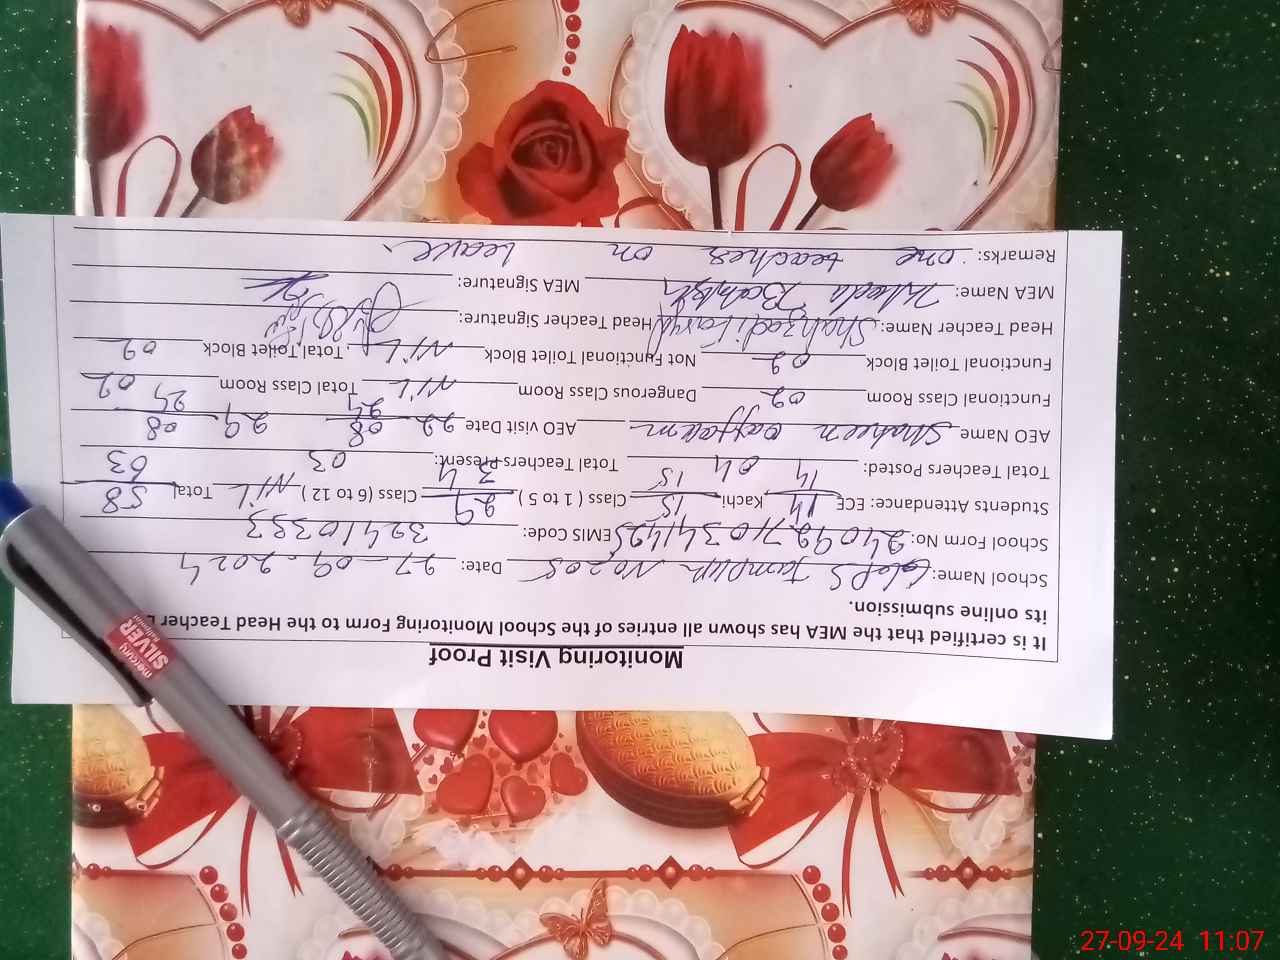 Monitoring Visit Proof
It is certified that the MEA has shown all entries of the School Monitoring Form to the Head Teacher
its online submission.
School Name: S Jampur No 205 Date: 27-09-2024
School Form No: EMIS Code: 32410393
Students Attendance: ECE 14/14 Kachi 15/15 Class (1 to 5) 29/34 Class (6 to 12) NIL Total 58/63
Total Teachers Posted: 04 Total Teachers Present: 03
AEO Name Shaheen AEO visit Date 22 08 24 29 08 24
Functional Class Room 02 Dangerous Class Room NIL Total Class Room 02
Functional Toilet Block 02 Not Functional Toilet Block NIL Total Toilet Block 02
Head Teacher Name: Head Teacher Signature:
MEA Name: MEA Signature:
Remarks: one teacher on Leave.
mercury
SILVER
27-09-24 11:07